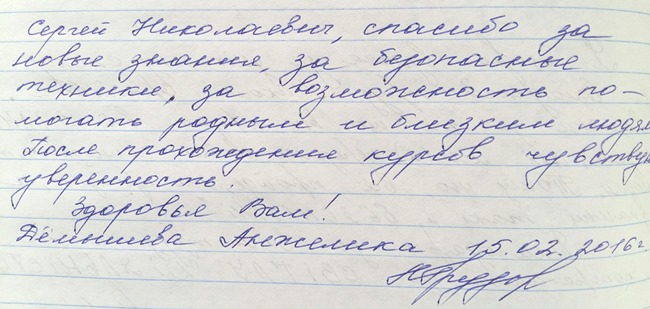 Сергей Николаевич, спасибо за
новые знания, за безопасные
техники, за возможность по-
могать родным и близким людям
После прохождения курсов чувствую
уверенность.
Здоровья Вам!
Анжелика 15.02.2016г